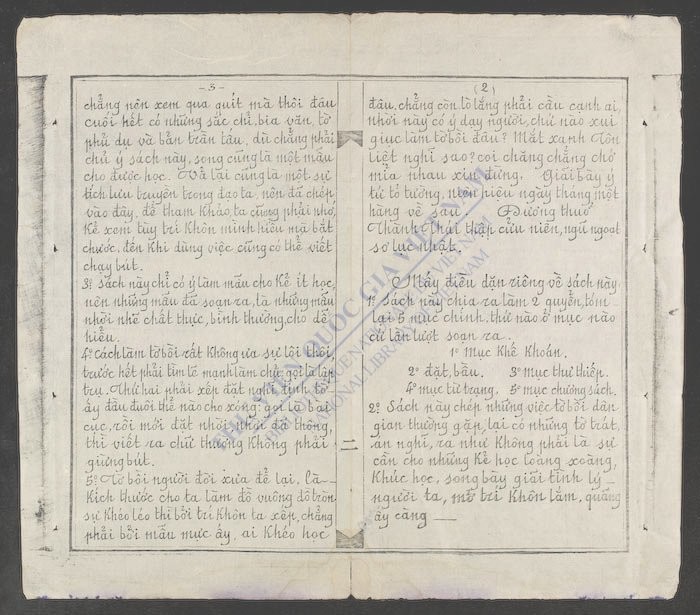 (2)
đâu, chẳng còn lo lắng phải cầu cạnh ai,
nhời này có ý dạy người, chứ nào xui
giục làm tờ bồi đâu? Mắt xanh Tôn
liệt nghĩ sao? coi chăng chẳng chớ
mỉa nhau xin đừng. Giãi bày ý
tứ tỏ tường, niên hiệu ngày tháng một
hàng về sau. Đương thuở
Thành Thái thập cửu niên, ngũ ngoạt
sơ lục nhật.
Mấy điều dặn riêng về sách này
1º Sách này chia ra làm 2 quyển, tóm
lại 5 mục chính, thứ nào ở mục nào
cứ lần lượt soạn ra.
1º Mục Khế Khoán.
2º đặt, bầu. 3º mục thư thiếp.
4º mục tư trạng. 5º mục chương sách.
2º Sách này chép những việc tờ bồi dân
gian thường gặp, lại có những tờ trát,
án nghĩ, ra như không phải là sự
cần cho những Kẻ học loàng xoàng,
Khúc học, song bày giãi tình lý
người ta, mở trí Khôn lắm, quảng
ấy càng
- 3 -
chẳng nên xem qua quít mà thôi đâu
cuối hết có những sắc chỉ, bia văn, tờ
phủ dụ và bản trần tấu, dù chẳng phải
chủ ý sách này, song cũng là một mẫu
cho được học. Vả lại cũng là một sự
tích lưu truyền trong đạo ta, nên đã chép
vào đây, để tham khảo, ta cũng phải nhớ,
Kẻ xem tùy trí Khôn mình hiểu mà bắt
chước, đến Khi dùng việc cũng có thể viết
chạy bút.
3º Sách này chỉ có ý làm mẫu cho Kẻ ít học,
nên những mẫu đã soạn ra, là những mẫu
nhời nhẽ chất thực, bình thường, cho dễ
hiểu.
4º Cách làm tờ bồi rất Không ưa sự lôi thôi,
trước hết phải tìm lẽ mạnh làm chủ, gọi là lập
trụ. Thứ hai phải xếp đặt nghĩ tình tờ
ấy đầu đuôi thể nào cho xong, gọi là bài
cục, rồi mới đặt nhời nhời đã thông,
thì viết ra chữ thường Không phải
gừng bút.
5º Tờ bồi người đời xưa để lại, là
Kích thước cho ta làm đồ vuông đồ tròn
sự Khéo léo thì bởi trí Khôn ta xếp, chẳng
phải bởi mẫu mực ấy, ai Khéo học
二
THƯ VIỆN QUỐC GIA VIỆT NAM
NATIONAL LIBRARY OF VIETNAM